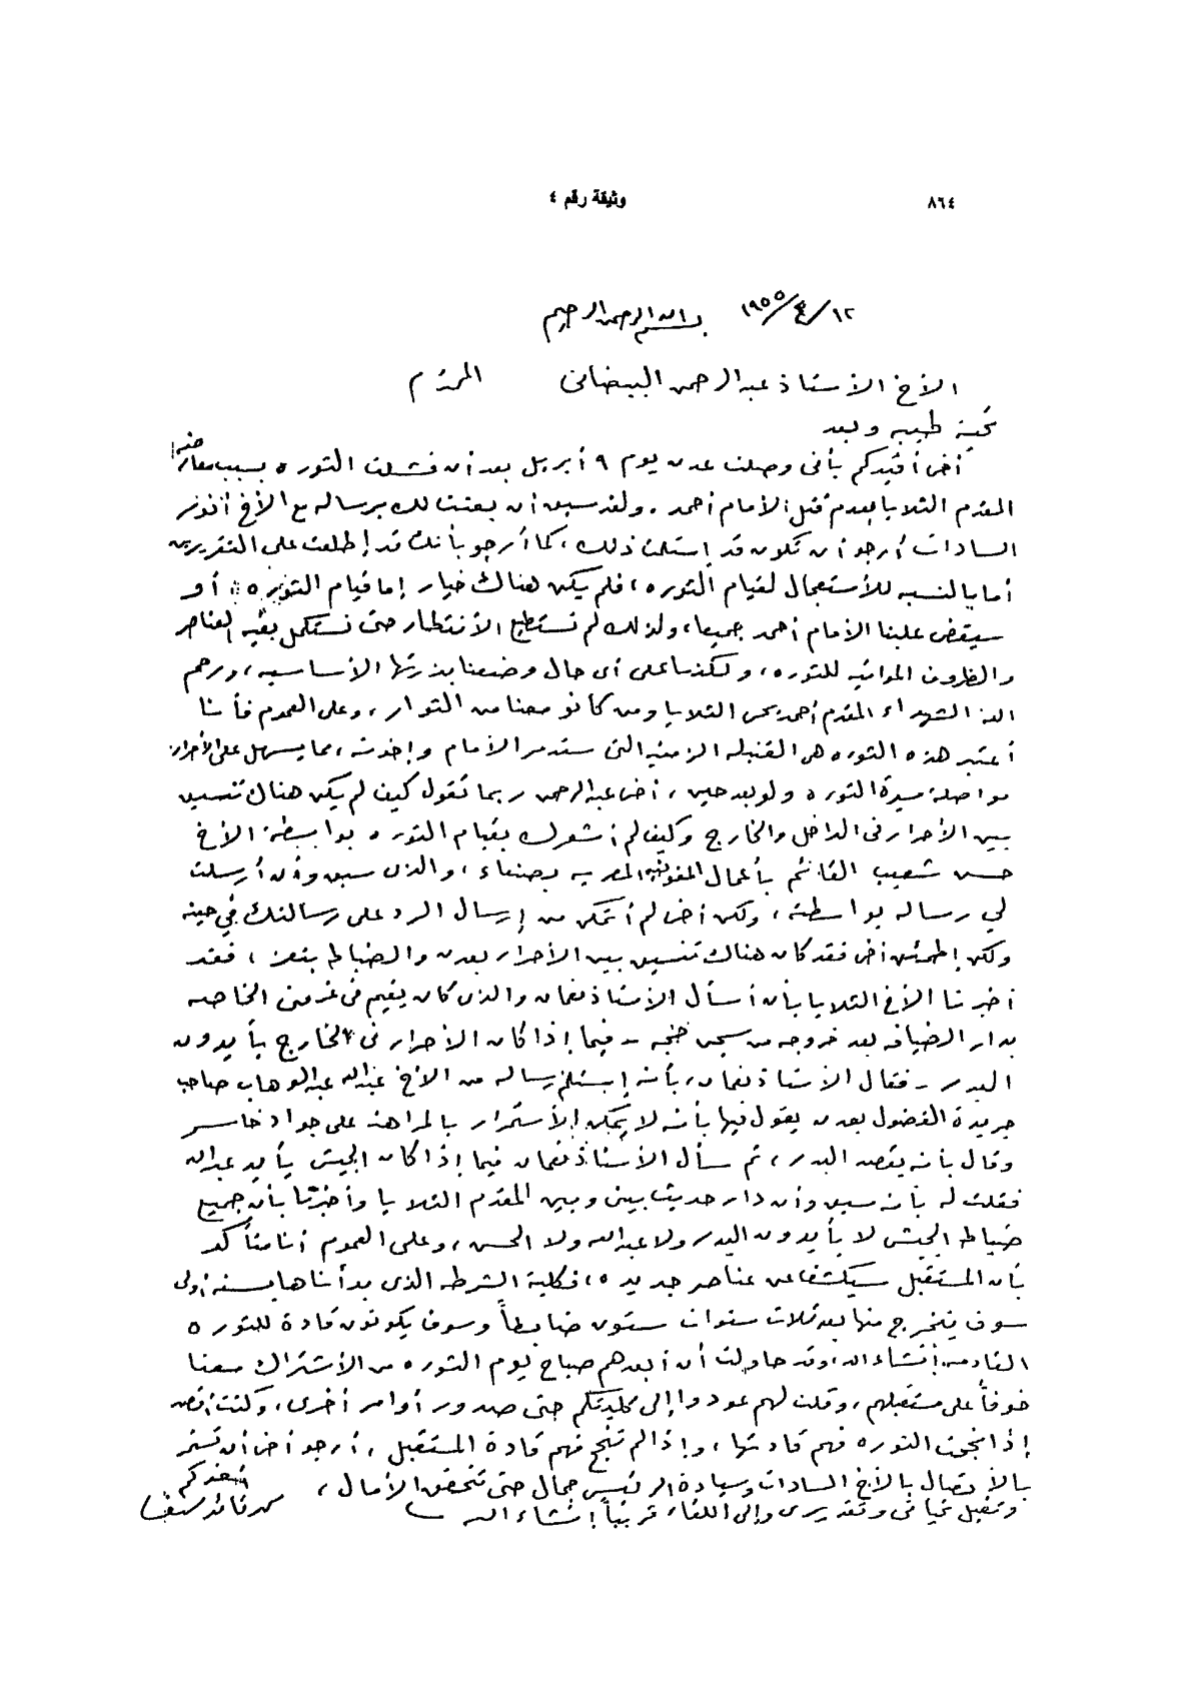 ٨٦٤
وثيقة رقم ٤
١٢/٤/١٩٥٥
بسم الله الرحمن الرحيم
الأخ الأستاذ عبدالرحمن البيضاني المحترم
تحية طيبه وبعد
أخي أفيدكم بأني وصلت عدن يوم ٩ أبريل بعد أن فشلت الثوره بسبب معارضة
المقدم الثلايا بعدم قتل الإمام أحمد . ولقد سبق أن بعثت لك برساله مع الأخ أنور
السادات أرجو أن تكون قد إستلمت ذلك ، كما أرجو بأنك قد إطلعت على التقريرين
أما بالنسبه للأستعجال لقيام الثوره ، فلم يكن هناك خيار إما قيام الثوره أو
سيقضي علينا الأمام أحمد جميعا ، ولذلك لم نستطيع الأنتظار حتى نستكمل بقية العناصر
والظروف المواتيه للثوره ، ولكننا على أى حال وضعنا بذرتها الأساسيه ، ورحم
الله الشهداء المقدم أحمد يحي الثلايا ومن كانو معنا من الثوار ، وعلى العموم فأنا
أعتبر هذه الثوره هي القنبله الزمنيه التي ستدمر الأمام وإخوته ، مما يسهل على الأحرار
مواصلة مسيرة الثوره ولو بعد حين ، أخي عبدالرحمن ربما تقول كيف لم يكن هناك تنسيق
بين الأحرار في الداخل والخارج وكيف لم أشعرك بقيام الثوره بواسطة الأخ
حسن شعيب القائم بأعمال المفوضيه المصريه بصنعاء ، والذي سبق وأن أرسلت
لي رساله بواسطته ، ولكن أخي لم أتمكن من إرسال الرد على رسالتك في حينه
ولكن إطمئن أخي فقد كان هناك تنسيق بين الأحرار بعدن والضباط بتعز ، فقد
أخبرنا الأخ الثلايا بأن أسأل الأستاذ نعمان والذي كان يقيم في غرفتي الخاصه
بدار الضيافه بعد خروجه من سجن حجه – فيما إذا كان الأحرار في الخارج يأيدون
البدر – فقال الأستاذ نعمان ، بأنه إستلم رساله من الأخ عبدالله عبدالوهاب صاحب
جريدة الفضول بعدن يقول فيها بأنه لا يمكن الأستمرار بالمراهنة على جواد خاسر
وقال بأنه يقصد البدر ، ثم سأل الأستاذ نعمان فيما إذا كان الجيش يأيد عبدالله
فقلت له بأنه سبق وأن دار حديث بيني وبين المقدم الثلايا وأخبرنا بأن جميع
ضباط الجيش لا يأيدون البدر ولا عبدالله ولا الحسن ، وعلى العموم أنا متأكد
بأن المستقبل سيكشف عن عناصر جديده ، فكلية الشرطه الذي بدأناها بسنه أولى
سوف يتخرج منها بعد ثلاث سنوات ستون ضابطاً وسوف يكونون قادة للثوره
القادمه إنشاء الله ، وقد حاولت أن أبعدهم صباح يوم الثوره من الأشتراك معنا
خوفاً على مستقبلهم ، وقلت لهم عودوا إلى كليتكم حتى صدور أوامر أخرى ، وكنت أقصد
إذا نجحت الثوره فهم قادتها ، وإذا لم تنجح فهم قادة المستقبل ، أرجو أخي أن تستمر
بالأتصال بالأخ السادات وسيادة الرئيس جمال حتى تتحقق الأمال ،
وتقبل تحياتي وتقديرى وإلى اللقاء قريباً إنشاء الله
أخوكم
محمد قائد سيف